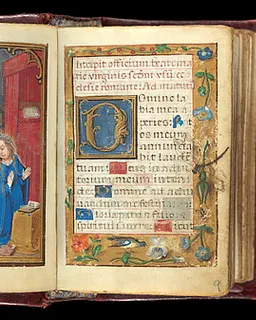 Incipit officium beate mari
e virginis scdm usu ec
clesie romane. Ad matuti
Domine la
bia mea a
peries: Et
os meum
annuncia
bit laudem
tuam: Deus in adiu
torium meum inten
de: Domine ad adiu
vandum me festina
Gloria patri et filio
spiritui sancto: Sicut
9